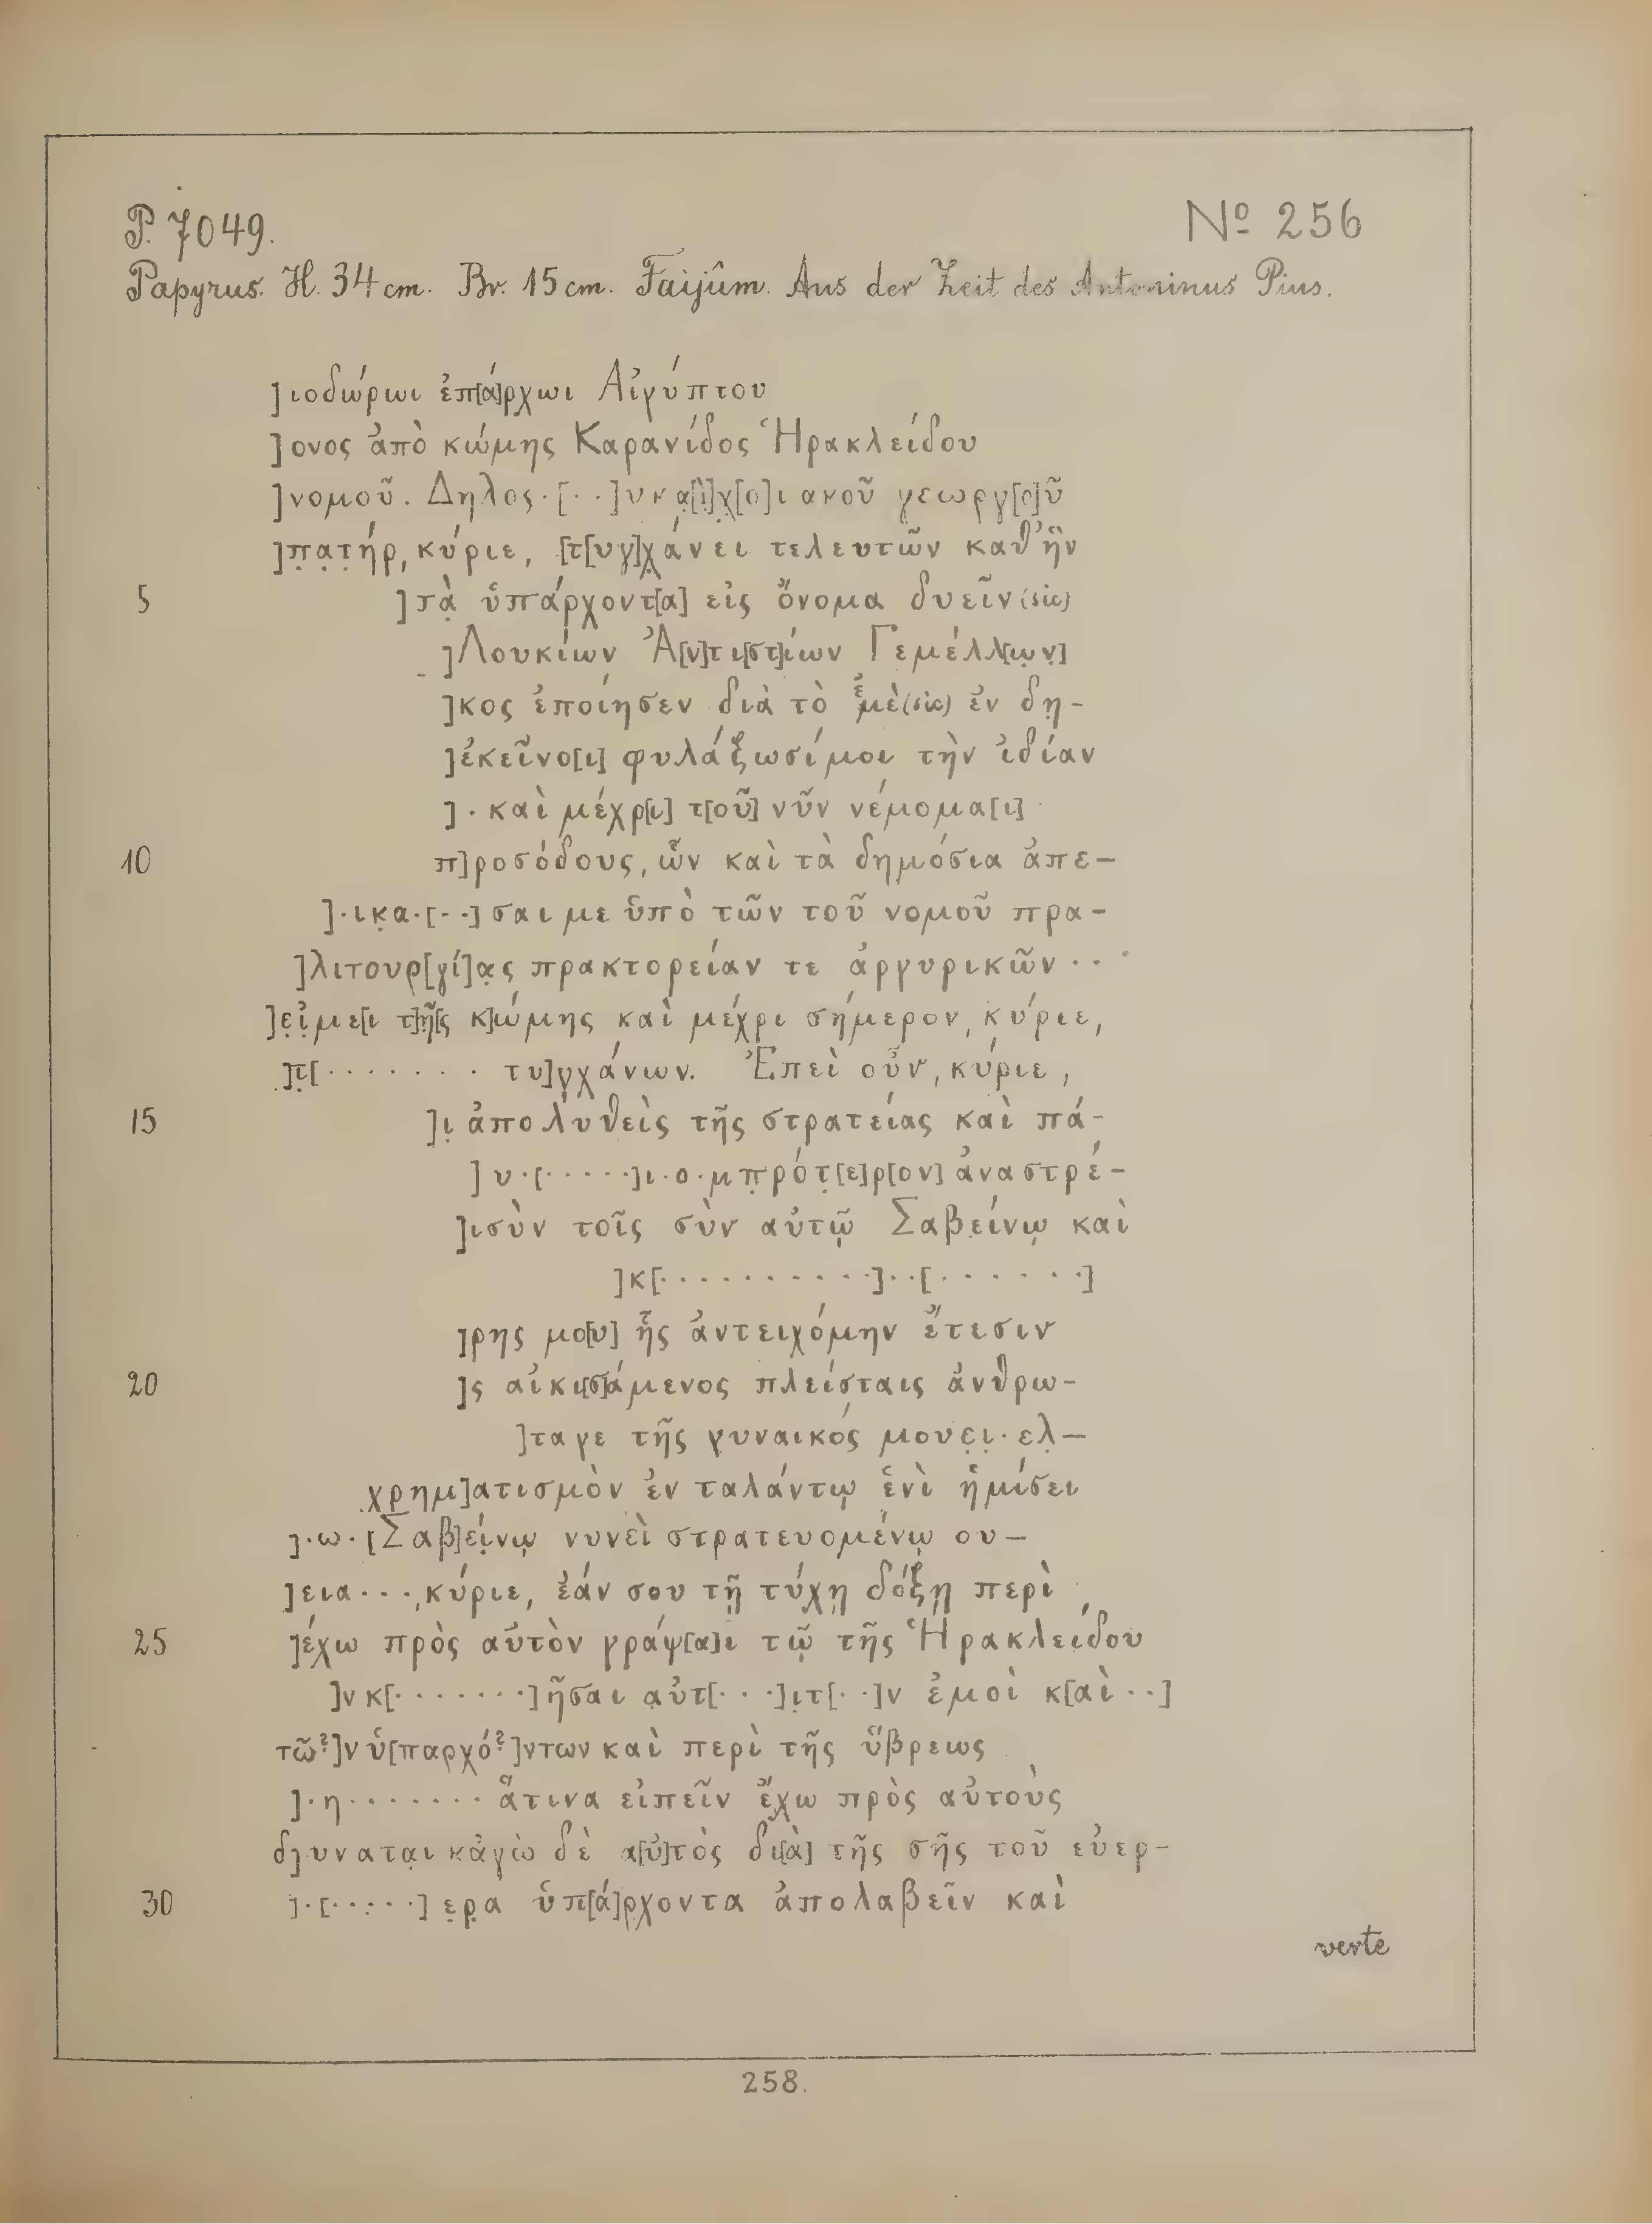 P. 7049.
Nº 256
Papyrus. H. 34 cm. Br. 15 cm. Faijûm. Aus der Zeit des Antoninus Pius.
]ιοδώρωι ἐπ[ά]ρχωι Αἰγύπτου
]ονος ἀπὸ κώμης Καρανίδος Ἡρακλείδου
]νομοῦ. Δηλος·[··]υκα̣[ὶ]χ̣[ο]ι ακοῦ γεωργ[ο]ῦ
]π̣α̣τ̣ήρ, κύριε, [τ[υγ]χ̣άνει τελευτῶν καθ᾽ ἣν
5 ]τὰ̣ ὑπάρχοντ[α] εἰς ὄνομα δυεῖν (sic)
]Λουκίων Ἀ[ν]τι[στ]ίων Γεμέλλ[ων̣]
]κος ἐποίησεν διὰ τὸ ἑμὲ (sic) ἐν δη̣-
]ἐκεῖνο[ι] φυλάξωσί μοι τὴν ἰδίαν
]· καὶ μέχρ[ι] τ[οῦ] νῦν νέμομα[ι]
10 π]ροσόδους, ὧν καὶ τὰ δημόσια ἀπε-
]·ικ̣α·[··]σαι με ὑπὸ τῶν τοῦ νομοῦ πρα-
]λιτουρ[γί]α̣ς πρακτορείαν τε ἀργυρικῶν ···
]ε̣ἰ̣με[ι τ]ῆ̣[ς κ]ώμης καὶ μέχρι σήμερον, κύριε,
]τ̣[········ τυ]γ̣χάνων. Ἐπεὶ οὖν, κύριε,
15 ]ι̣ ἀπολυθεὶς τῆς στρατείας καὶ πά-
]υ·[·····]ι·ο·μπ̣ρότ̣[ε]ρ[ον] ἀναστρέ-
]ισὺν τοῖς σὺν αὐτῷ Σαβείνῳ καὶ
]κ[···········]··[······]
]ρης μο[υ] ἧς ἀντειχόμην ἔτεσιν
20 ]ς αἰκι[σ]άμενος πλείσταις ἀνθρω-
]ταγε τῆς γυναικός μουε̣ι̣·ελ̣-
χρημ]ατισμὸν ἐν ταλάντῳ ἑνὶ ἡμίσει
]·ω·[Σαβ]εί̣νῳ νυνεὶ στρατευομένῳ ου-
]εια···,κύριε, ἐάν σου τῇ τύχῃ δόξῃ περὶ
25 ]έχω πρὸς αὐτὸν γράψ[α]ι τῷ τῆς Ἡρακλείδου
]νκ[·······]ῆσαι α̣ὐτ[···]ι̣τ[··]ν ἐμοὶ κ[αὶ··]
τῶ?]ν ὑ[παρχό?]ντων καὶ περὶ τῆς ὕβρεως
]·η······· ἅτινα εἰπεῖν ἔχω πρὸς αὐτοὺς
δ]υναται κἀγὼ δὲ α[ὐ]τὸς δι[ὰ] τῆς σῆς τοῦ εὐερ-
30 ]·[·····]ε̣ρ̣α ὑπ[ά]ρχοντα ἀπολαβεῖν καὶ
verte
258.